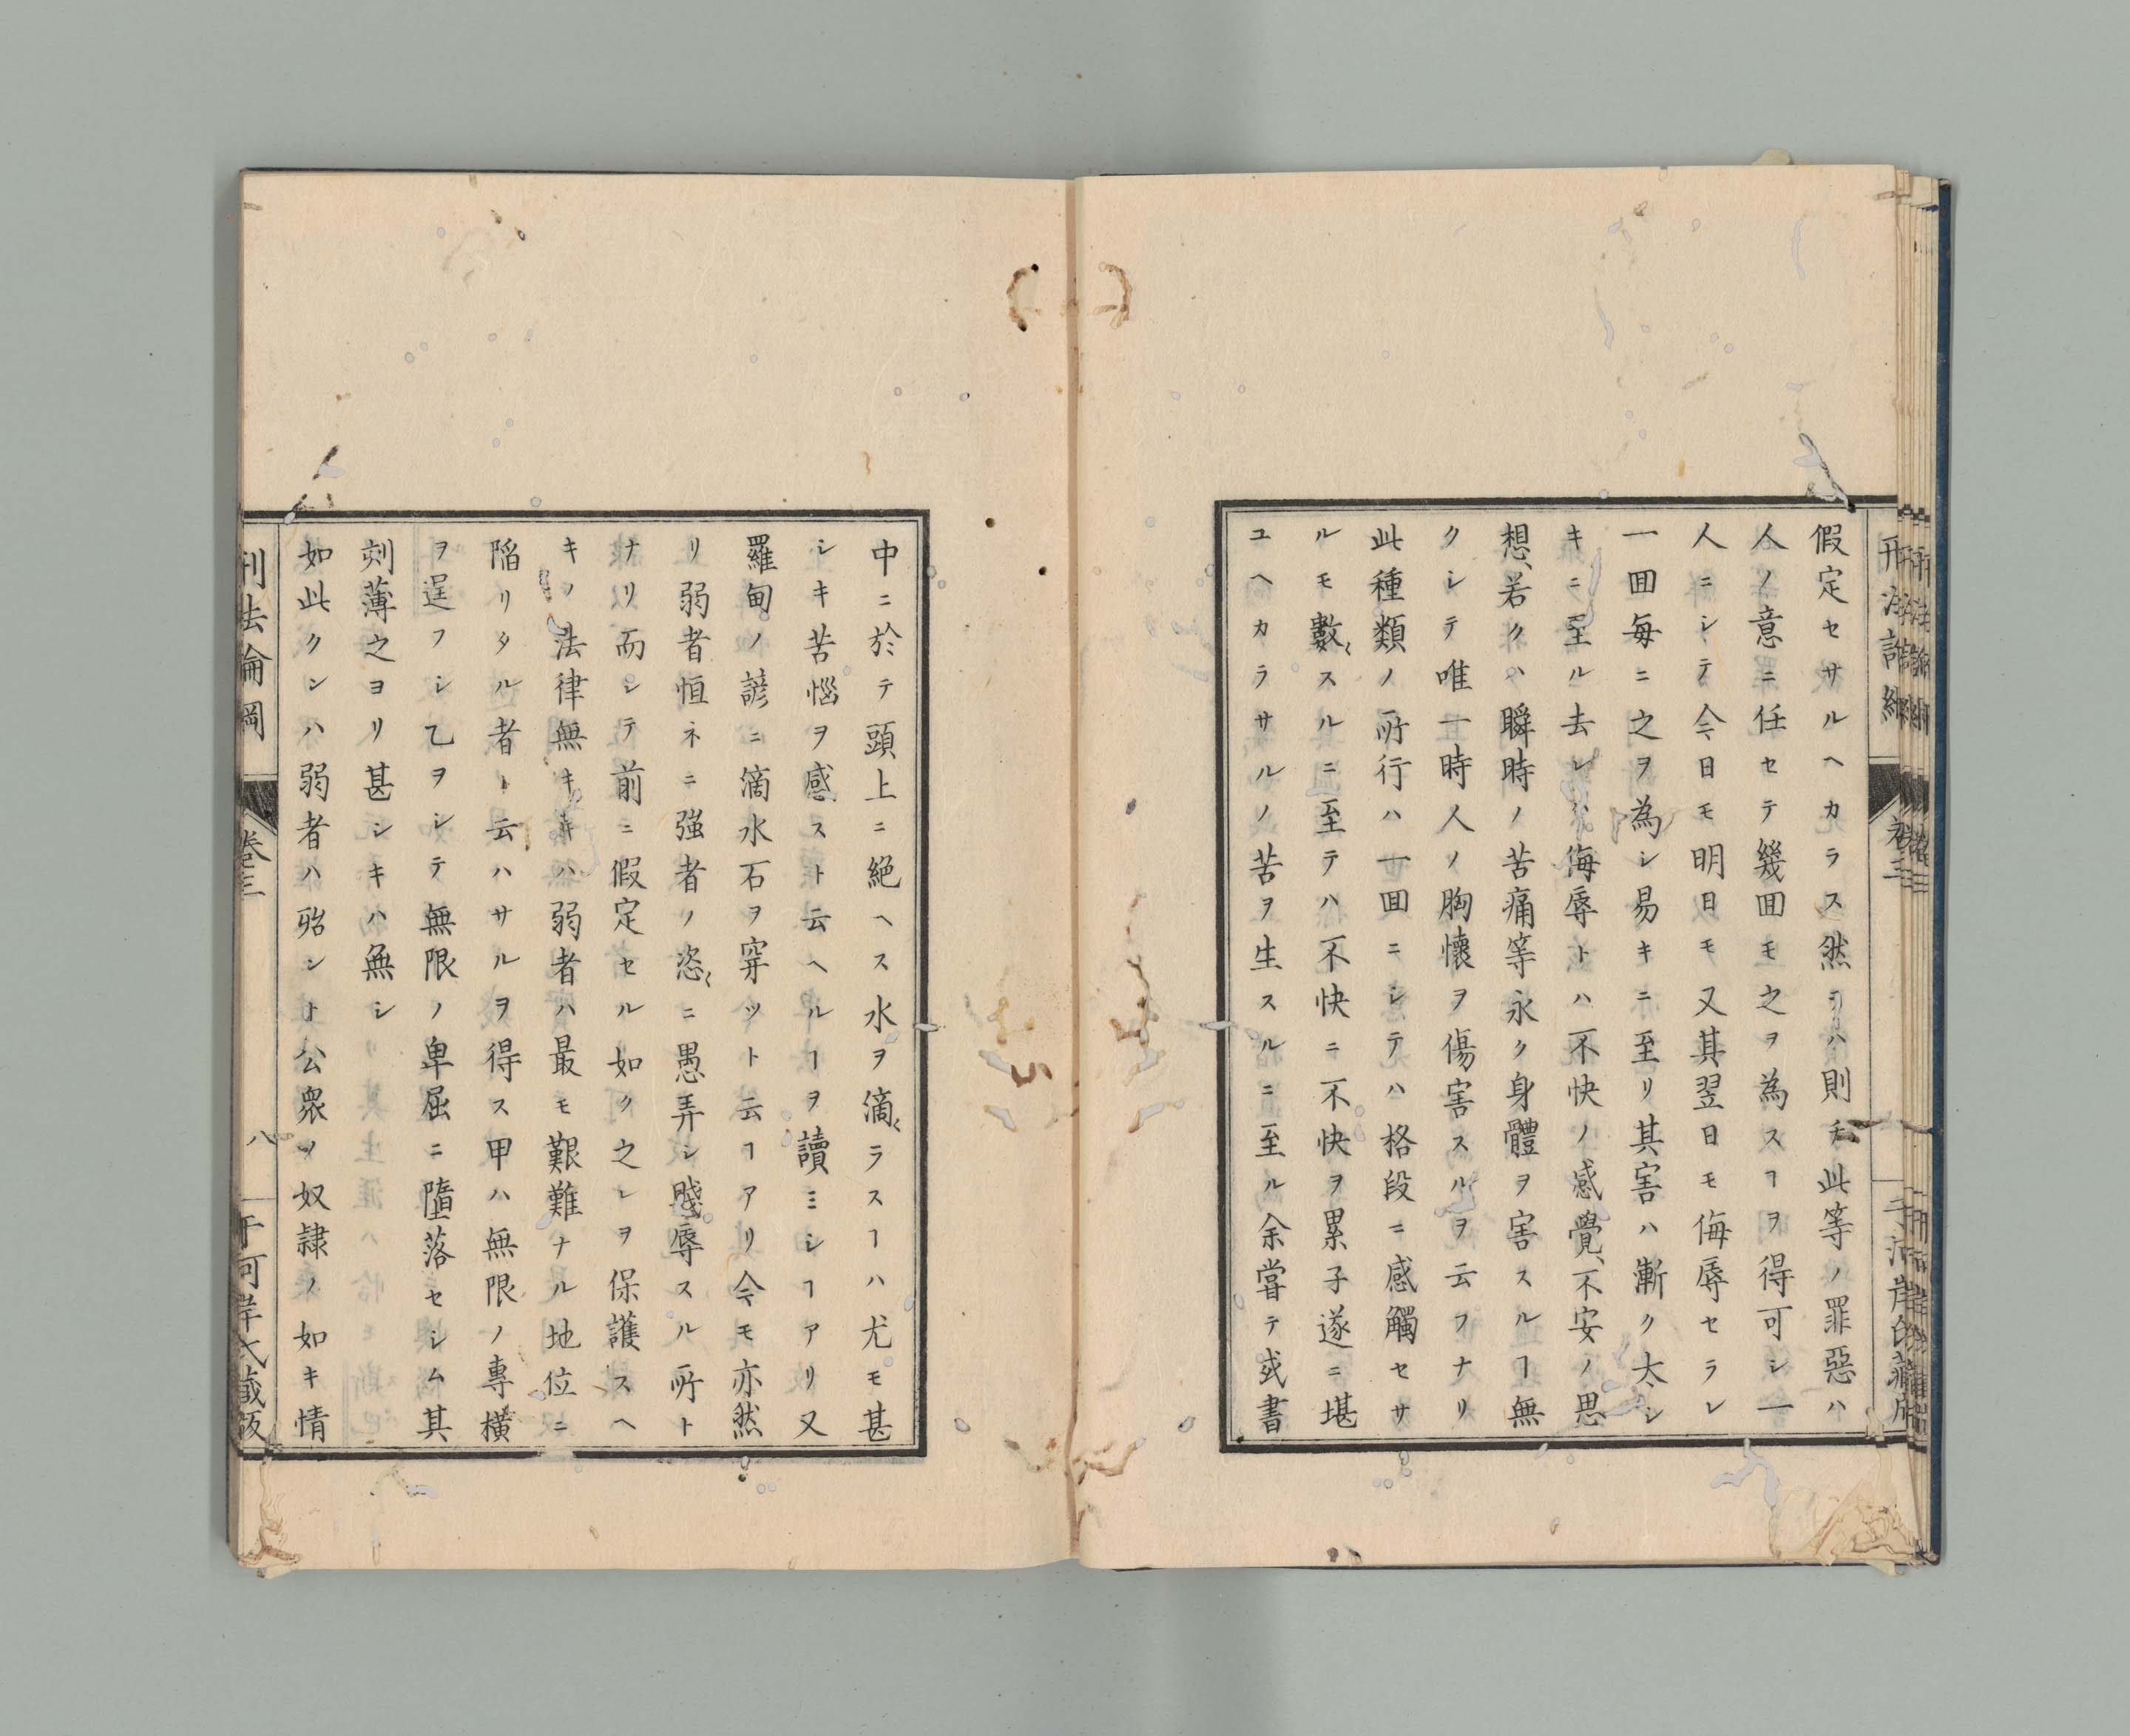 假定セサルヘカラス然ラハ則チ此等ノ罪惡ハ
人ノ意ニ任セテ幾囬モ之ヲ為スヿヲ得可シ一
人ニシテ今日モ明日モ又其翌日モ侮辱セラレ
一囬毎ニ之ヲ為シ易キニ至リ其害ハ漸ク大シ
キニ至ル去レハ侮辱トハ不快ノ感覺、不安ノ思
想、若クハ瞬時ノ苦痛等永ク身體ヲ害スルヿ無
クシテ唯一時人ノ胸懷ヲ傷害スルヲ云フナリ
此種類ノ所行ハ一囬ニシテハ格段ニ感觸セサ
ルモ數〻スルニ至テハ不快ニ不快ヲ累子遂ニ堪
ユヘカラサルノ苦ヲ生スルニ至ル余嘗テ或書
中ニ於テ頭上ニ絶ヘス水ヲ滴〻ラスヿハ尤モ甚
シキ苦惱ヲ感スト云ヘルヿヲ讀ミシヿアリ又
羅甸ノ諺ニ滴水石ヲ穿ツト云フヿアリ今モ亦然
リ弱者恒ネニ強者ノ恣〻ニ愚弄シ賤辱スル所ト
ナリ而シテ前ニ假定セル如ク之レヲ保護スヘ
キノ法律無キトキハ弱者ハ最モ艱難ナル地位ニ
陥リタル者ト云ハサルヲ得ス甲ハ無限ノ專横
ヲ逞フシ乙ヲシテ無限ノ卑屈ニ墮落セシム其
刻薄之ヨリ甚シキハ無シ
如此クンハ弱者ハ殆ント公衆ノ奴隷ノ如キ情
刑法論綱
卷三
八
于河岸氏藏版